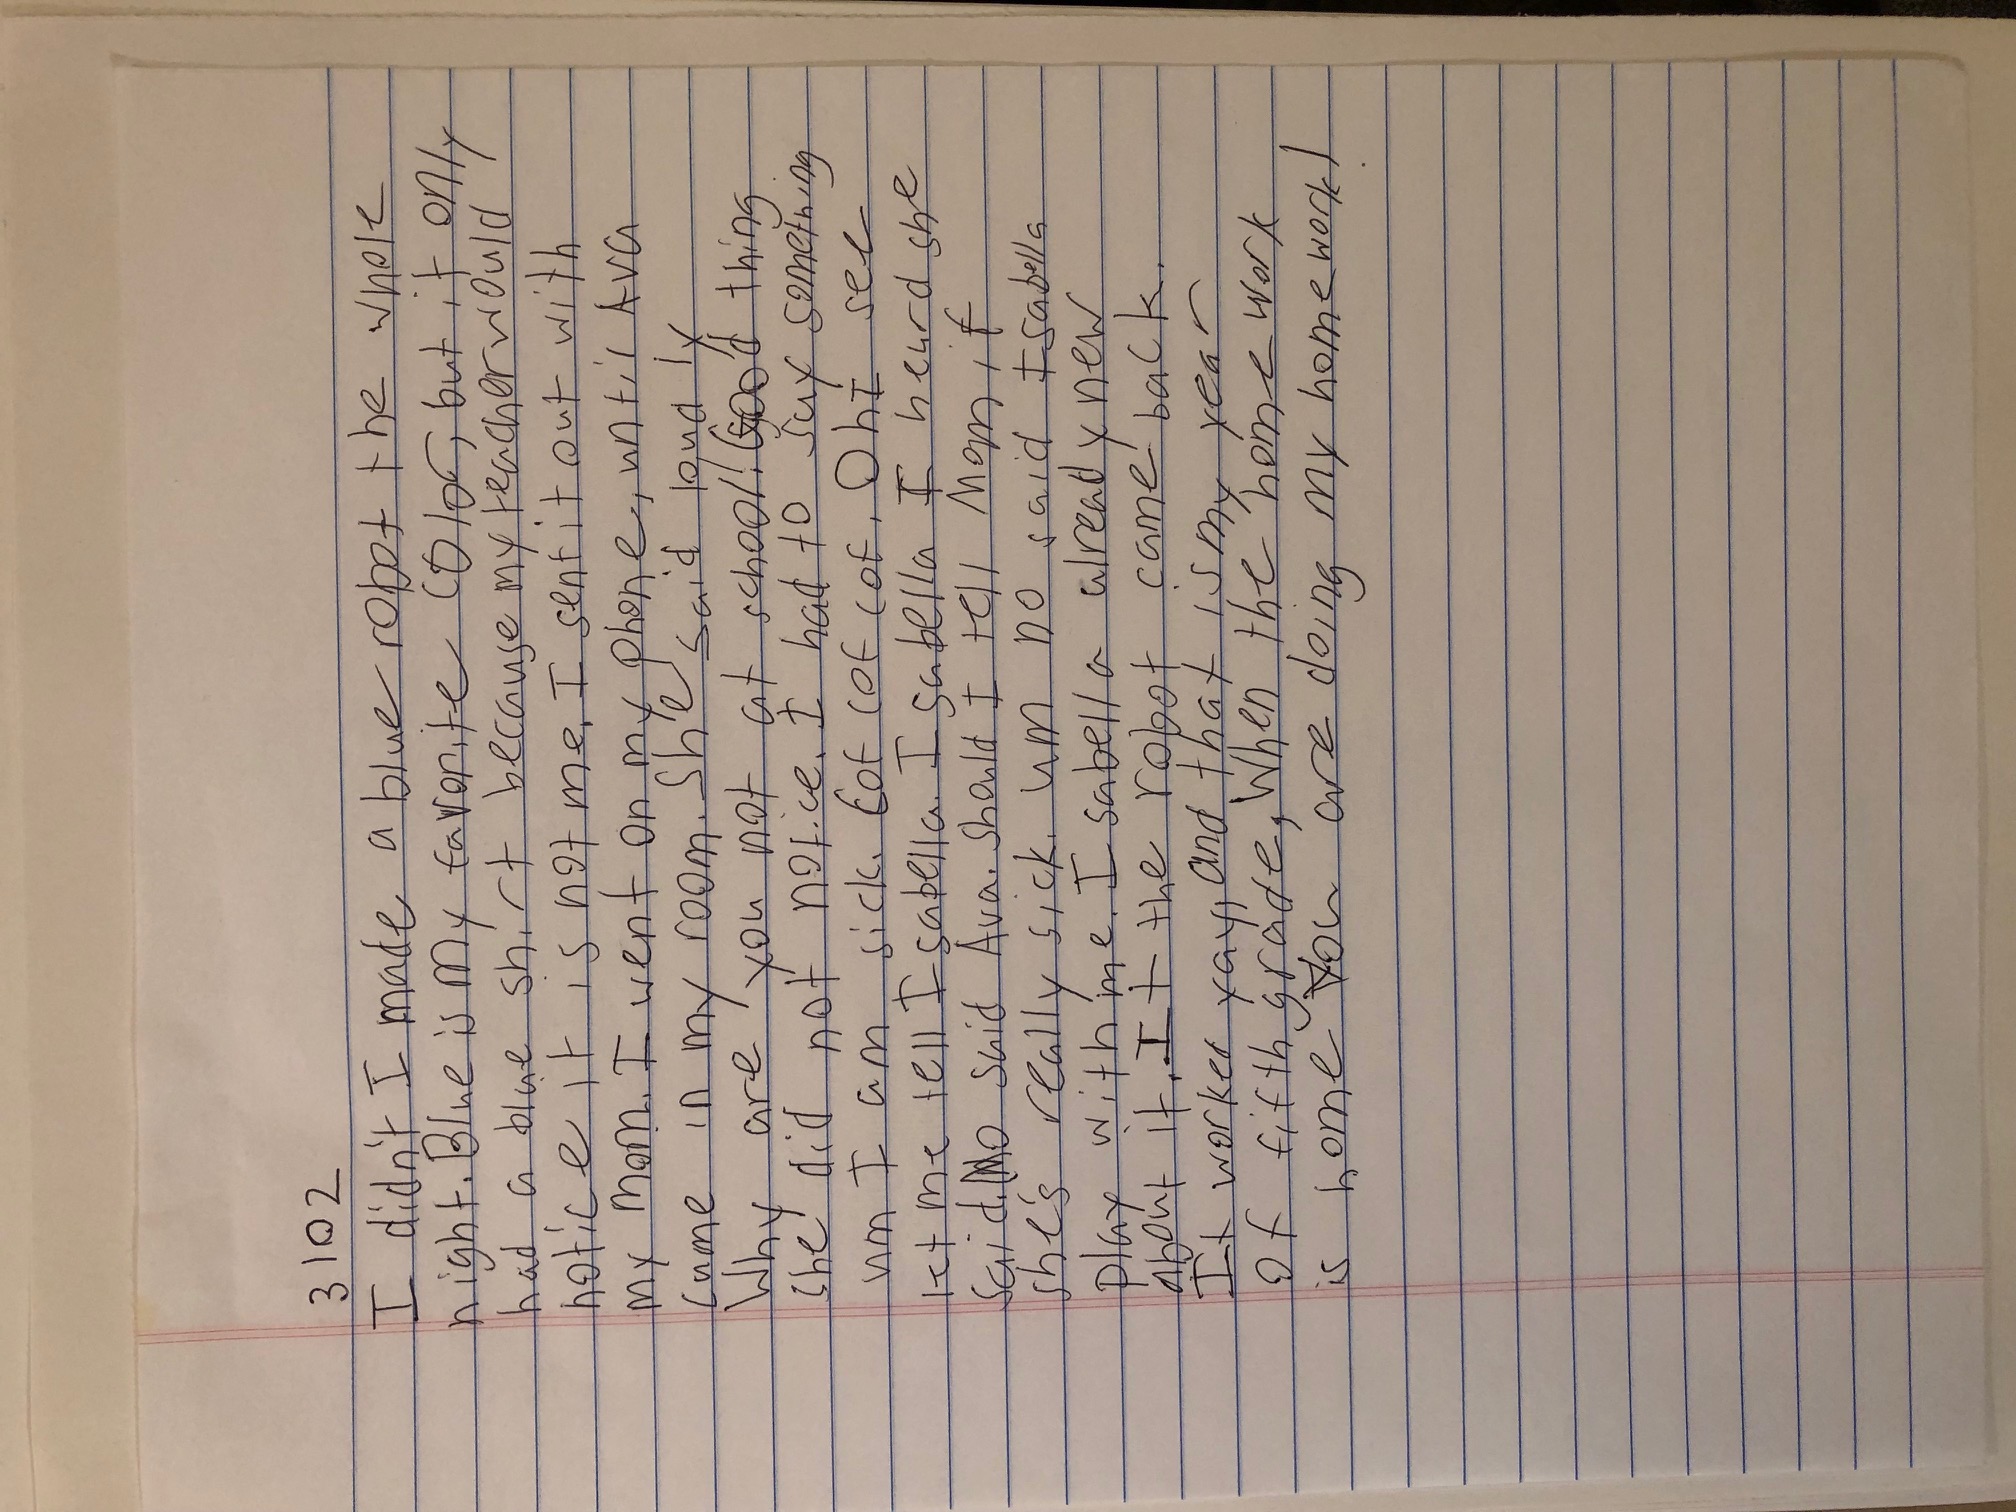 3102
I didn't I made a blue robot the whole
night. Blue is my favorite color, but it only
had a blue shirt because my teacher would
notice it is not me. I sent it out with
my mom. I went on my phone, until Ava
came in my room. She said loudly
Why are you not at school! Good thing
she did not notice. I had to say something
um I am sick. Cof cof cof. Oh I see
let me tell Isabella. Isabella I heard she
said. No said Ava. Should I tell Mom if
she's really sick. um no said Isabella
play with me. Isabella already new
about it. It the robot came back.
It worked yay, and that is my year
of fifth grade, When the home work
is home You are doing my homework!